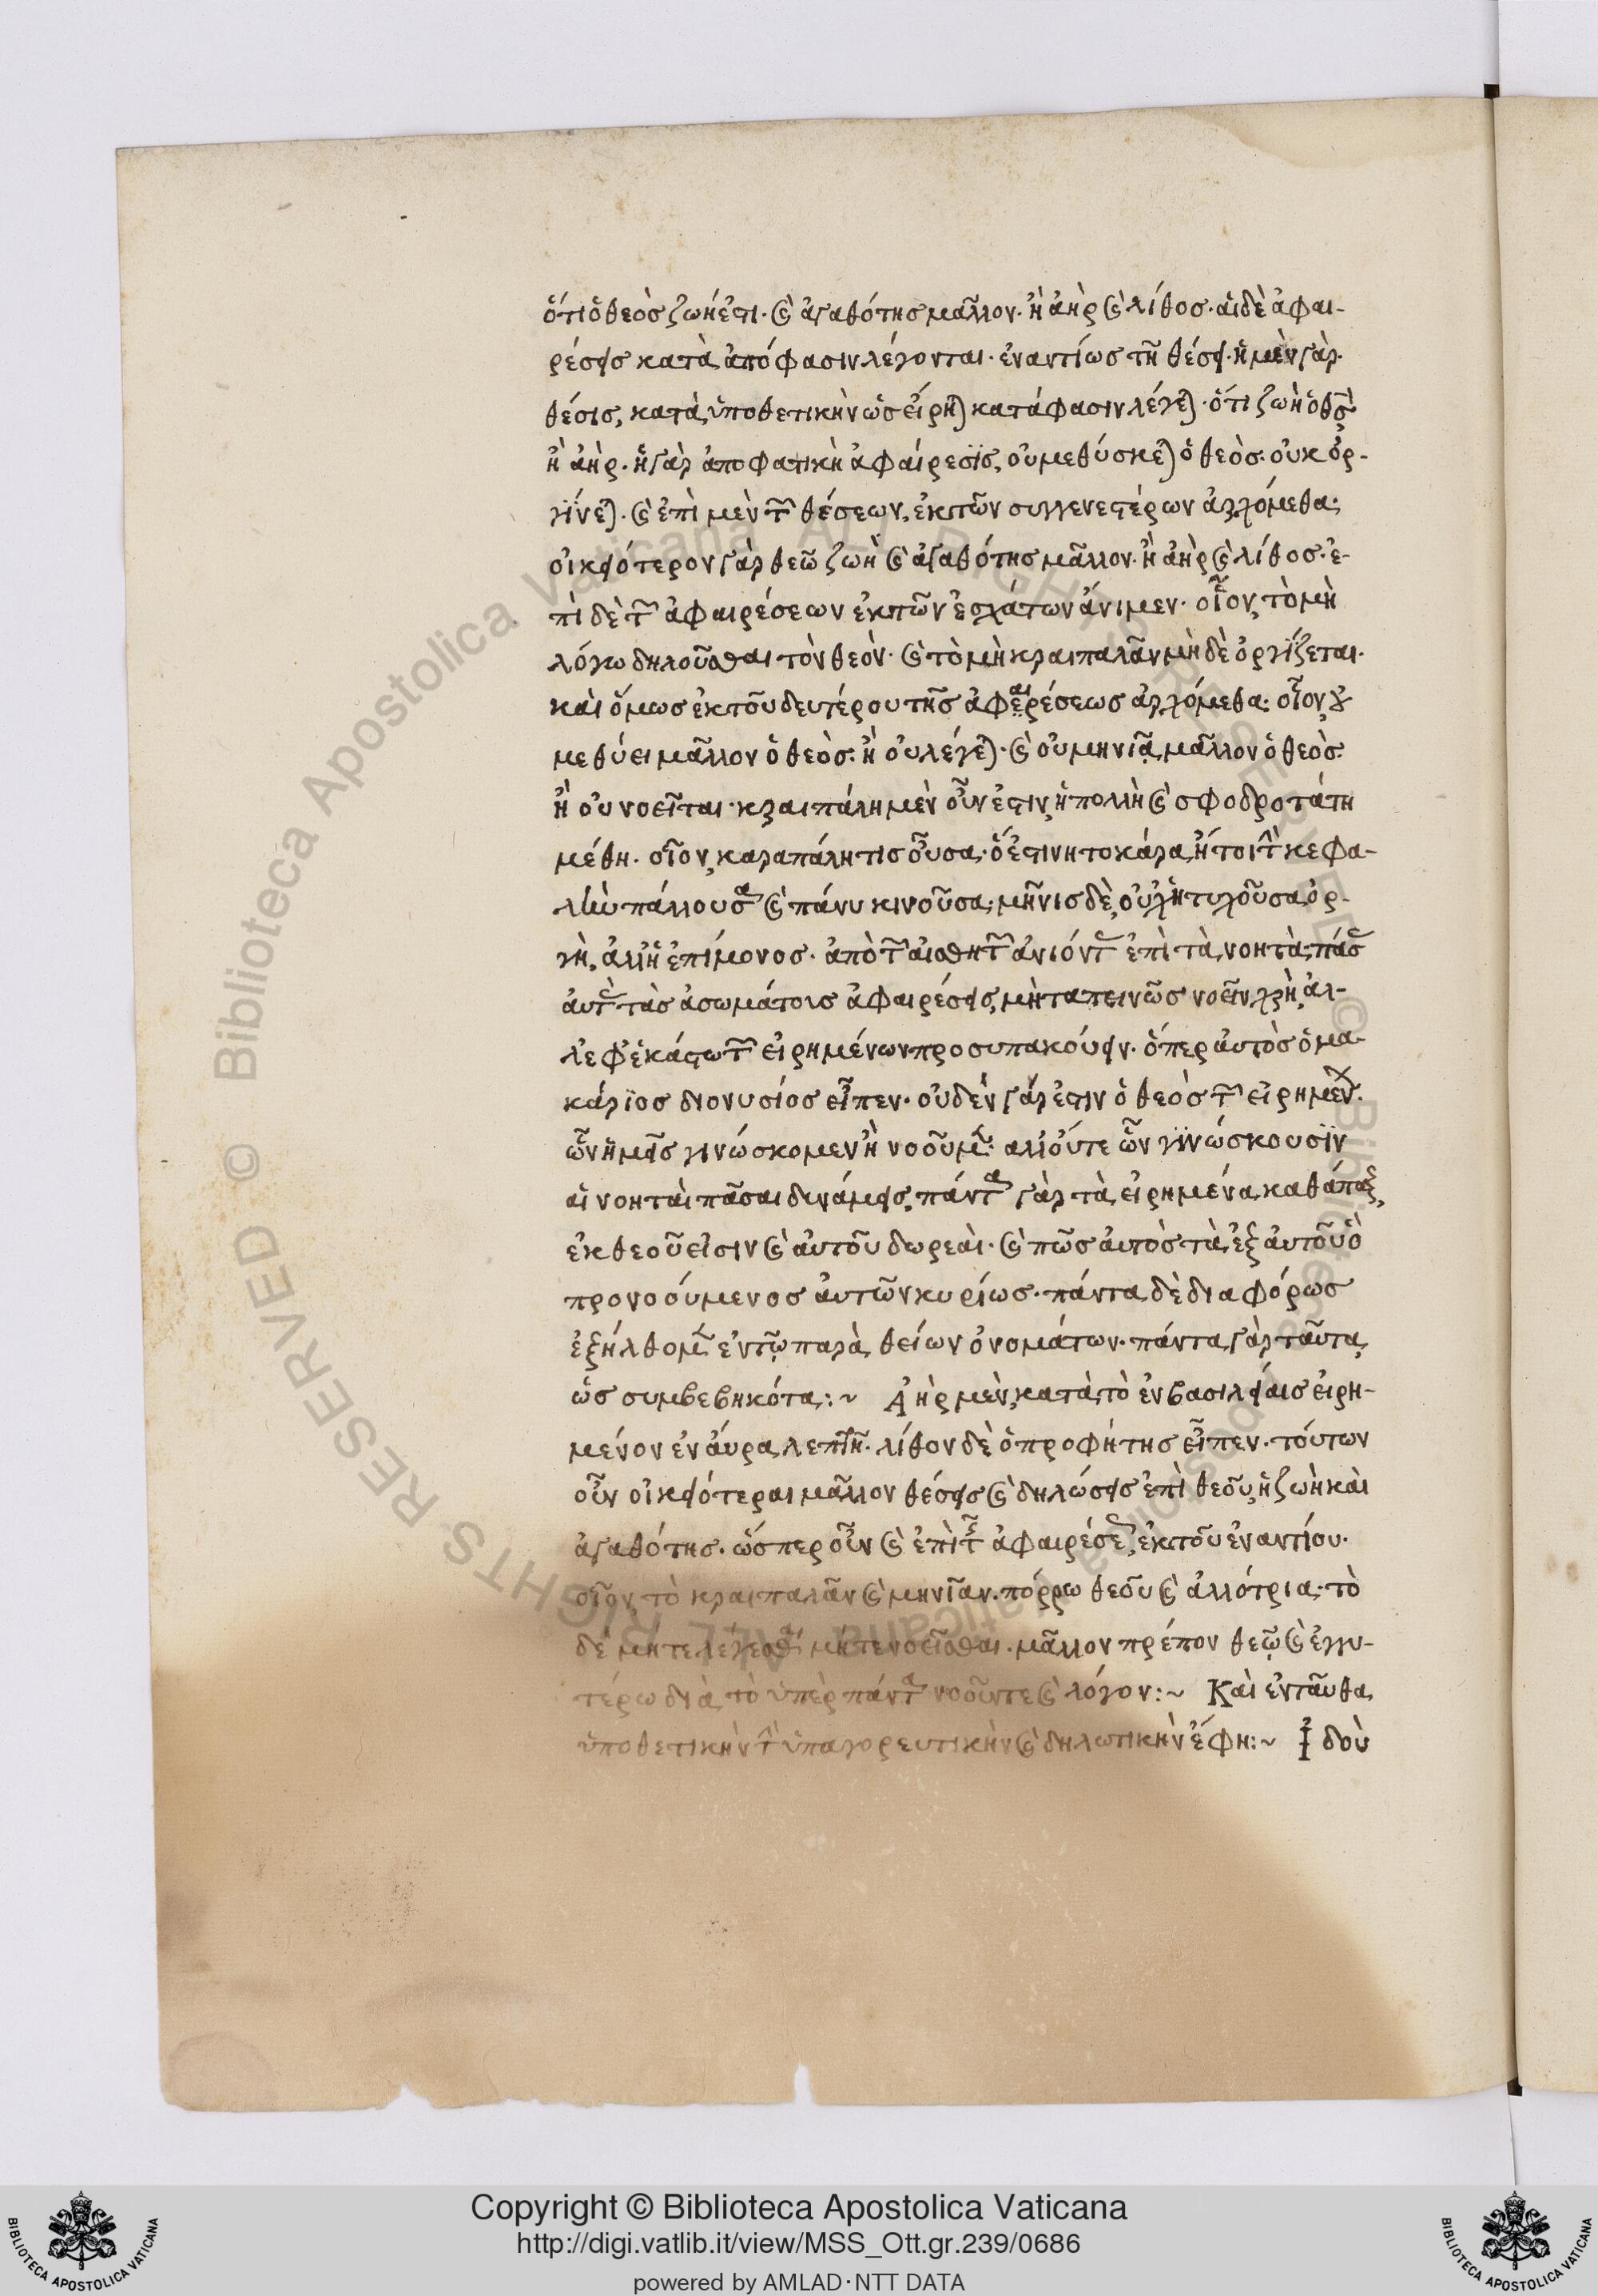 ὅτι ὁ θεὸσ ζωή ἐστι· καὶ ἀγαθότησ μᾶλλον· ἢ ἀὴρ καὶ λίθοσ· αἱ δὲ ἀφαι-
ρέσεισ κατὰ ἀπόφασιν λέγονται· ἐναντίωσ τῆ θέσει· ἡ μὲν γὰρ
θέσισ, κατὰ ὑποθετικὴν ὡσ εἴρηται κατάφασιν λέγεται· ὅτι ζωὴ ὁ θσ̅
ἢ ἀὴρ· ἡ γὰρ ἀποφατικὴ ἀφαίρεσϊσ, οὐ μεθύσκεται ὁ θεὸσ· οὐκ ὀρ-
γΐνεται· καὶ ἐπὶ μὲν τῶν θέσεων, ἐκ τῶν συγγενεστέρων ἀρχόμεθα·
οἰκειότερον γὰρ θεῶ ζωὴ καὶ ἀγαθότησ μᾶλλον· ἢ ἀὴρ καὶ λίθοσ· ἐ-
πὶ δὲ τῶν ἀφαιρέσεων ἐκ τῶν ἐσχάτων ἄνιμεν· οἷον, τὸ μὴ
λόγω δηλοῦσθαι τὸν θεὸν· καὶ τὸ μὴ κραιπαλᾶν μὴ δὲ ὀργΐζεται·
καὶ ὅμωσ ἐκ τοῦ δευτέρου τῆσ ἀφαιρέσεωσ ἀρχόμεθα· οἷον, οὐ
μεθύει μᾶλλον ὁ θεὸσ· ἢ οὐ λέγεται· καὶ οὐ μηνιᾶ, μᾶλλον ὁ θεὸσ·
ἢ οὐ νοεῖται· κραιπάλη μὲν οὖν ἐστιν, ἡ πολλὴ καὶ σφοδροτάτη
μέθη· οἷον, καραπάλη τισ οὖσα· ὅ ἐστιν η το κάρα, ἤτοι τὴν κεφα-
λὴν πάλλουσα καὶ πάνυ κινοῦσα· μῆνισ δὲ, οὐχ ἡ τυχοῦσα ὀρ-
γὴ, ἀλλ' ἡ ἐπίμονοσ· ἀπὸ τῶν αἰσθητῶν ἀνιόντασ ἐπὶ τὰ νοητὰ· πάσασ
αὐτὰσ τὰσ ἀσωμάτοισ ἀφαιρέσεισ, μὴ ταπεινῶσ νοεῖν χρὴ, ἀλ-
λ' ἐφ' ἑκάστω τῶν εἰρημένων προσυπακούειν· ὅπερ αὐτὸσ ὁ μα-
κάρϊοσ διονυσίοσ εἶπεν· οὐδέν γάρ ἐστιν ὁ θεὸσ τῶν εἰρημένων·
ὧν ἡμεῖσ γινώσκομεν ἢ νοοῦμεν· ἀλλ' οὔτε ὧν γϊνώσκουσϊν
αἱ νοηταὶ πᾶσαι δυνάμεισ, πάντα γὰρ τὰ εἰρημένα καθάπαξ,
ἐκ θεοῦ εἰσιν καὶ αὐτοῦ δωρεὰι· καὶ πῶσ ἀυτὸσ τὰ ἐξ αὐτοῦ ὁ
προνοούμενοσ ἀυτῶν κυρίωσ· πάντα δὲ διαφόρωσ
ἐξήλθομεν ἐν τῷ παρὰ θείων ὀνομάτων· πάντα γὰρ ταῦτα,
ὡσ συμβεβηκότα:~ Ἀὴρ μὲν, κατὰ τὸ ἐν βασιλείαισ ἐιρη-
μένον ἐν ἄυρα λεπτῆ· λίθον δὲ ὁ προφήτησ εἶπεν· τόυτων
οὖν οἰκειότεραι μᾶλλον θέσεισ καὶ δηλώσεισ ἐπὶ θεοῦ, ἡ ζωὴ κὰι
ἀγαθότησ· ὥσπερ οὖν καὶ ἐπὶ τῆσ ἀφαιρέσεωσ, ἐκ τοῦ ἐναντίου·
οἷον, τὸ κραιπαλᾶν καὶ μηνιᾶν· πόρρω θεοῦ καὶ ἀλλότρια· τὸ
δὲ μήτε λέγεσθαι μήτε νοεῖσθαι· μᾶλλον πρέπον θεῷ καὶ ἐγγυ-
τέρω διὰ τὸ ὑπὲρ πάντα νοῦν τε καὶ λόγον:~ Καὶ ἐνταῦθα
ὑποθετικὴν τὴν ὑπαγορευτικὴν καὶ δηλωτικὴν ἔφη:~ Ἰδοὺ
Copyright © Biblioteca Apostolica Vaticana
http://digi.vatlib.it/view/MSS_Ott.gr.239/0686
powered by AMLAD·NTT DATA